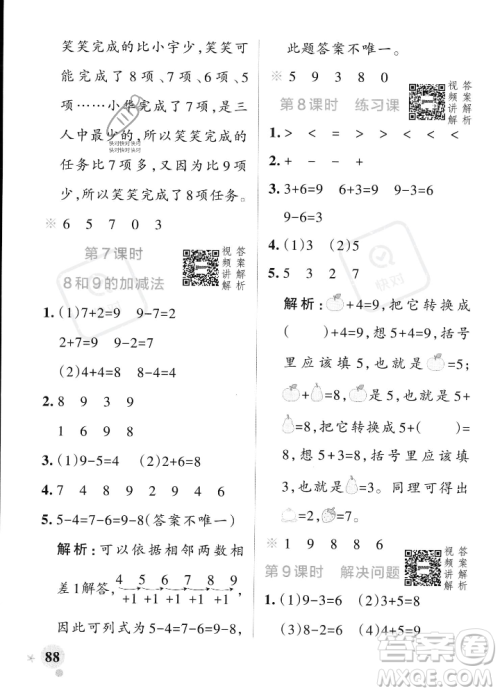 笑笑完成的比小宇少,笑笑可
能完成了8项、7项、6项、5项
……小华完成了7项,是三
人中最少的,所以笑笑完成的
任务比7项多,又因为比9项
少,所以笑笑完成了8项任务。
※ 6 5 7 0 3
第7课时
8和9的加减法
视频讲解
答案解析
1.(1)7+2=9 9-7=2
2+7=9 9-2=7
(2)4+4=8 8-4=4
2. 8 9 3 9
1 6 9 8
3.(1)9-5=4 (2)2+6=8
4. 7 4 8 9 2 7 6 4
5. 5-4=7-6=9-8(答案不唯一)
解析:可以依据相邻两数相
差1解答,4 5 6 7 8 9
+1 +1 +1
因此可列式为5-4=7-6=9-8。
88
此题答案不唯一。
※ 5 9 3 8 0
第8课时 练习课
视频讲解
答案解析
1. > < = > < <
2. + - + -
3. 3+6=9 6+3=9 9-3=6
9-6=3
4.(1)3 (2)5
5. 5 3 2 7
解析:+4=9,把它转换成
( )+4=9,想5+4=9,括号
里应该填5,也就是=5;
+=8,是5,也就是5+
=8,把它转换成5+( )
=8,想5+3=8,括号里应该
填3,也就是=3。同理可得出
=2,=7。
※ 1 9 8 8 6
第9课时 解决问题
视频讲解
答案解析
1.(1)9-3=6 (2)3+5=8
(3)8-2=6 (4)5+4=9
快对
快对快对快对
快对快对快对
答案圈
MXQE.COM